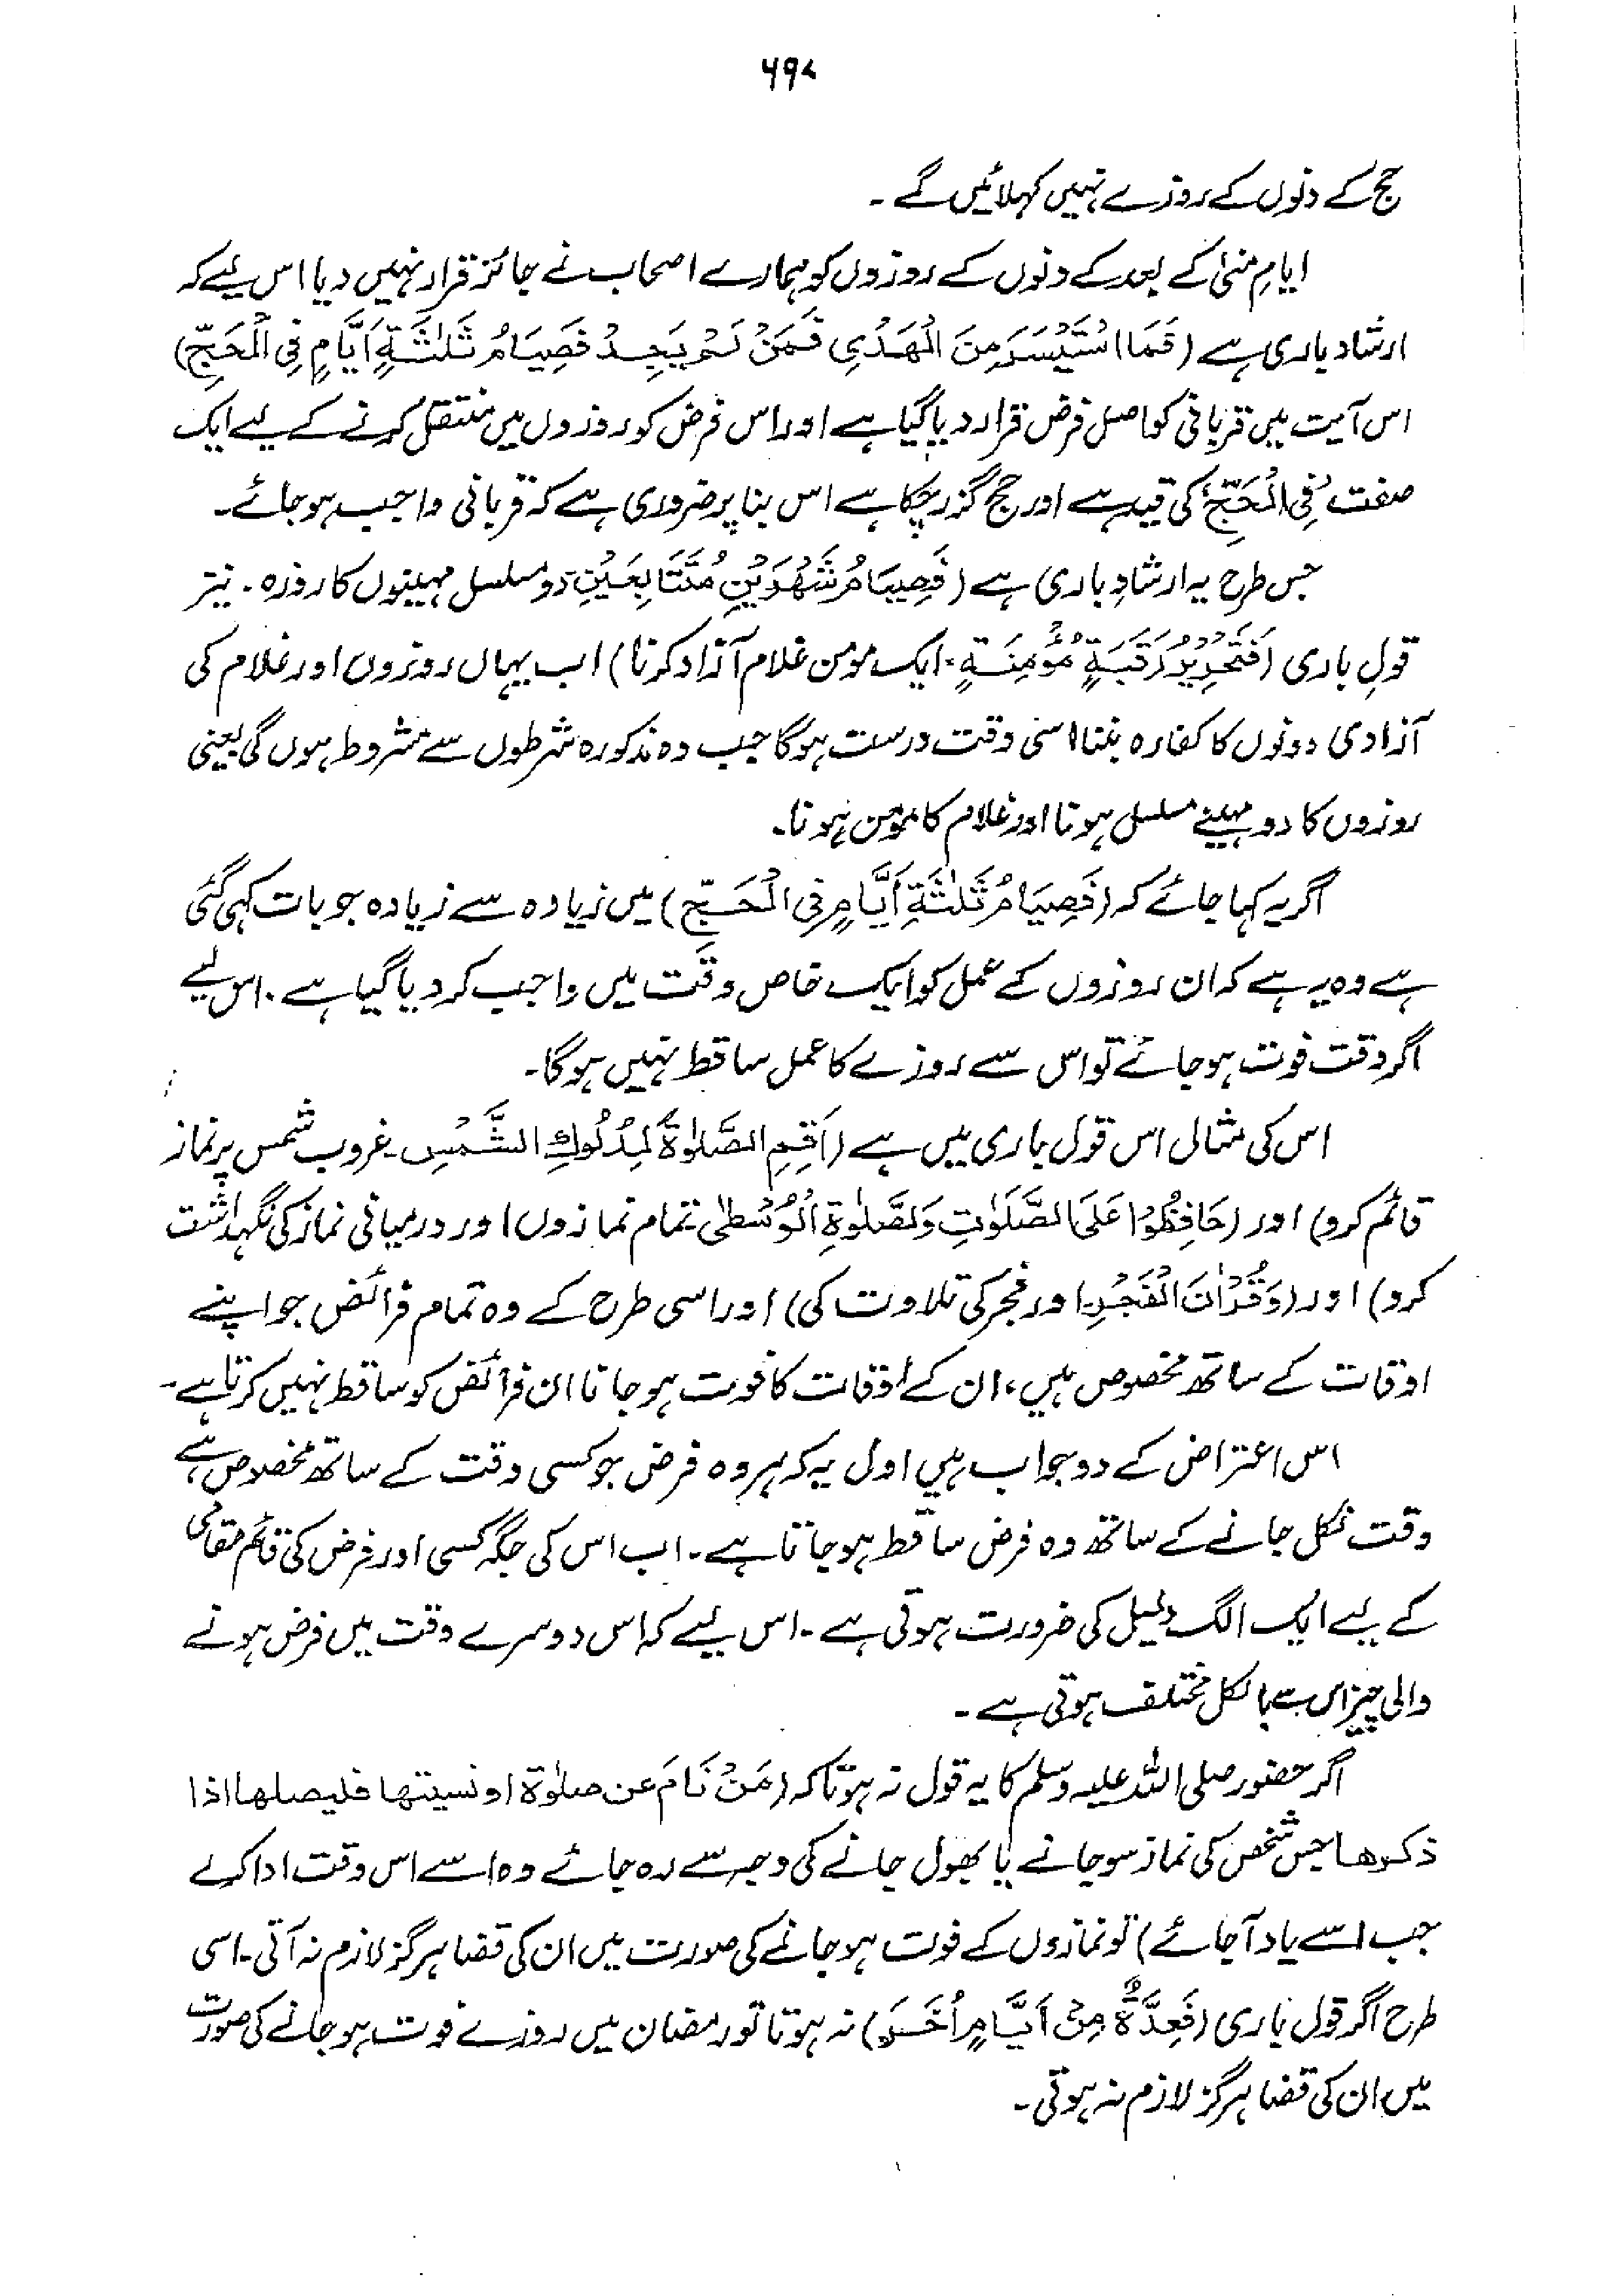 ۶۹۷
حج کے دنوں کے روزے نہیں کہلائیں گے ۔
ایامِ منیٰ کے بعد کے دنوں کے روزوں کو ہمارے اصحاب نے جائز قرار نہیں دیا اس لیے کہ
ارشاد باری ہے (فَمَا اسْتَيْسَرَ مِنَ الْهَدْيِ فَمَنْ لَمْ يَجِدْ فَصِيَامُ ثَلٰثَةِ اَيَّامٍ فِى الْحَجِّ)
اس آیت میں قربانی کو اصل فرض قرار دیا گیا ہے اور اس فرض کو روزوں میں منتقل کرنے کے لیے ایک
صفت 'فِی الْحَجِّ' کی قید ہے اور حج گزر چکا ہے اس بنا پر ضروری ہے کہ قربانی واجب ہو جائے ۔
جس طرح یہ ارشادِ باری ہے (فَصِيَامُ شَهْرَيْنِ مُتَتَابِعَيْنِ دو مسلسل مہینوں کا روزہ ۔ نیز
قولِ باری (فَتَحْرِيْرُ رَقَبَةٍ مُؤْمِنَةٍ ۔ ایک مومن غلام آزاد کرنا) اب یہاں روزوں اور غلام کی
آزادی دونوں کا کفارہ بننا اسی وقت درست ہوگا جب وہ مذکورہ شرطوں سے مشروط ہوں گی یعنی
روزوں کا دو مہینے مسلسل ہونا اور غلام کا مومن ہونا۔
اگر یہ کہا جائے کہ (فَصِيَامُ ثَلٰثَةِ أَيَّامٍ فِى الْحَجِّ) میں زیادہ سے زیادہ جو بات کہی گئی
ہے وہ یہ ہے کہ ان روزوں کے عمل کو ایک خاص وقت میں واجب کر دیا گیا ہے ۔ اس لیے
اگر وقت فوت ہو جائے تو اس سے روزے کا عمل ساقط نہیں ہوگا ۔
اس کی مثال اس قول باری میں ہے (اَقِمِ الصَّلٰوةَ لِدُلُوكِ الشَّمْسِ ۔ غروب شمس پر نماز
قائم کرو) اور (حَافِظُوْا عَلَى الصَّلَوٰتِ وَالصَّلٰوةِ الْوُسْطٰى تمام نمازوں اور درمیانی نماز کی نگہداشت
کرو) اور (وَقُرْاٰنَ الْفَجْرِ اور فجر کی تلاوت کی) اور اسی طرح کے وہ تمام فرائض جو اپنے
اوقات کے ساتھ مخصوص ہیں، ان کے اوقات کا فوت ہو جانا ان فرائض کو ساقط نہیں کرتا ہے ۔
اس اعتراض کے دو جواب ہیں اول یہ کہ ہر وہ فرض جو کسی وقت کے ساتھ مخصوص ہے
وقت نکل جانے کے ساتھ وہ فرض ساقط ہو جاتا ہے ۔ اب اس کی جگہ کسی اور فرض کی قائم مقامی
کے لیے ایک الگ دلیل کی ضرورت ہوتی ہے ۔ اس لیے کہ اس دوسرے وقت میں فرض ہونے
والی چیز اس سے بالکل مختلف ہوتی ہے ۔
اگر حضور صلی اللہ علیہ وسلم کا یہ قول نہ ہوتا کہ (مَنْ نَامَ عن صلوٰة او نسيتها فليصلها اذا
ذكرها جس شخص کی نماز سو جانے یا بھول جانے کی وجہ سے رہ جائے وہ اسے اس وقت ادا کرلے
جب اسے یاد آجائے) تو نمازوں کے فوت ہو جانے کی صورت میں ان کی قضا ہرگز لازم نہ آتی ۔ اسی
طرح اگر قول باری (فَعِدَّةٌ مِنْ اَيَّامٍ اُخَرَ) نہ ہوتا تو رمضان میں روزے فوت ہو جانے کی صورت
میں ان کی قضا ہرگز لازم نہ ہوتی ۔